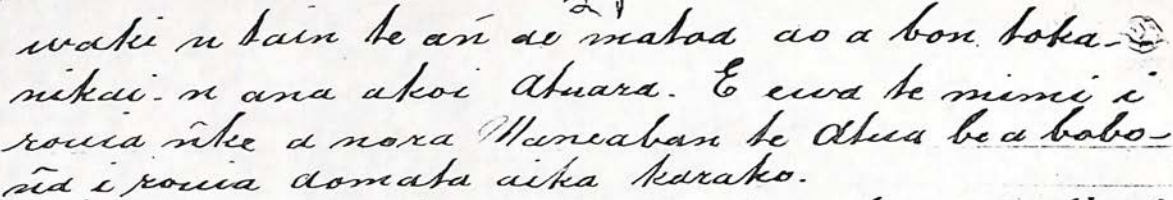 waki n tain te añ ae matoa ao a bon toka-
nikai n ana akoi Atuara. E ewa te mimi i
rouia ñke a nora Maneaban te Atua be a bobo-
ña i rouia aomata aika karako.